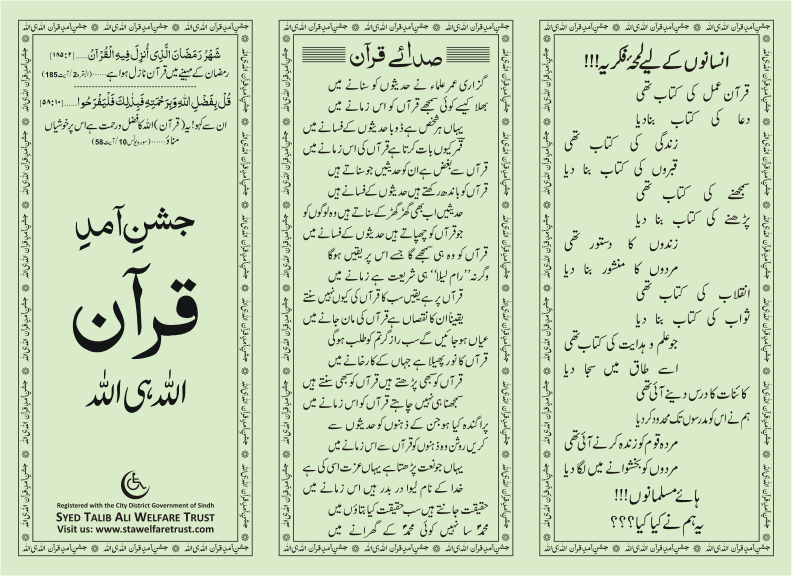 انسانوں کے لیے لمحۂ فکریہ!!!
قرآن عمل کی کتاب تھی
دعا کی کتاب بنادیا
زندگی کی کتاب تھی
قبروں کی کتاب بنا دیا
سمجھنے کی کتاب تھی
پڑھنے کی کتاب بنا دیا
زندوں کا دستور تھی
مردوں کا منشور بنا دیا
انقلاب کی کتاب تھی
ثواب کی کتاب بنا دیا
جو علم و ہدایت کی کتاب تھی
اسے طاق میں سجا دیا
کائنات کا درس دینے آئی تھی
ہم نے اس کو مدرسوں تک محدود کر دیا
مردہ قوم کو زندہ کرنے آئی تھی
مردوں کو بخشوانے میں لگا دیا
ہائے مسلمانوں!!!
یہ ہم نے کیا کیا؟؟؟
صدائے قرآن
گزاری عمر علماء نے حدیثوں کو سنانے میں
بھلا کیسے کوئی سمجھے قرآن کو اس زمانے میں
یہاں ہر شخص ہے ڈوبا حدیثوں کے فسانے میں
قمر کیوں بات کرتا ہے قرآن کی اس زمانے میں
قرآں سے بغض ہے ان کو حدیثیں جو سناتے ہیں
قرآں کو باندھ رکھتے ہیں حدیثوں کے فسانے میں
حدیثیں اب بھی گھڑ گھڑ کے سناتے ہیں وہ لوگوں کو
جو قرآں کو چھپاتے ہیں حدیثوں کے فسانے میں
قرآں کو وہ ہی سمجھے گا جسے اس پر یقیں ہوگا
وگرنہ ’’رام لیلا‘‘ ہی شریعت ہے زمانے میں
قرآں پر ہے یقیں سب کا قرآں کی کیوں نہیں سنتے
یقیناً ان کا نقصاں ہے قرآں کی مان جانے میں
عیاں ہو جائیں گے سب راز گر تم کو طلب ہوگی
قرآں کا نور پھیلا ہے جہاں کے کارخانے میں
قرآں کو بھی پڑھتے ہیں قرآں کو بھی سنتے ہیں
سمجھنا ہی نہیں چاہتے قرآں کو اس زمانے میں
پراگندہ کیا ہو جن کے ذہنوں کو حدیثوں سے
کریں روشن وہ ذہنوں کو قرآں سے اس زمانے میں
یہاں جو نعت پڑھتا ہے یہاں عزت اسی کی ہے
خدا کے نام لیوا در بدر ہیں اس زمانے میں
حقیقت جانتے ہیں سب حقیقت کیا بتاؤں میں
محمدؐ سا نہیں کوئی محمدؐ کے گھرانے میں
شَهْرُ رَمَضَانَ الَّذِي أُنزِلَ فِيهِ الْقُرْآنُ......[۲:۱۸۵]
رمضان کے مہینے میں قرآن نازل ہوا ہے......(البقرہ2/آیت185)
قُلْ بِفَضْلِ اللهِ وَبِرَحْمَتِهِ فَبِذَٰلِكَ فَلْيَفْرَحُوا......[۱۰:۵۸]
ان سے کہو! یہ (قرآن) اللہ کا فضل و رحمت ہے اس پر خوشیاں
مناؤ......(سورہ یونس10/آیت58)
جشنِ آمدِ
قرآن
اللہ ہی اللہ
Registered with the City District Government of Sindh
SYED TALIB ALI WELFARE TRUST
Visit us: www.stawelfaretrust.com
جشنِ آمدِ قرآن اللہ ہی اللہ